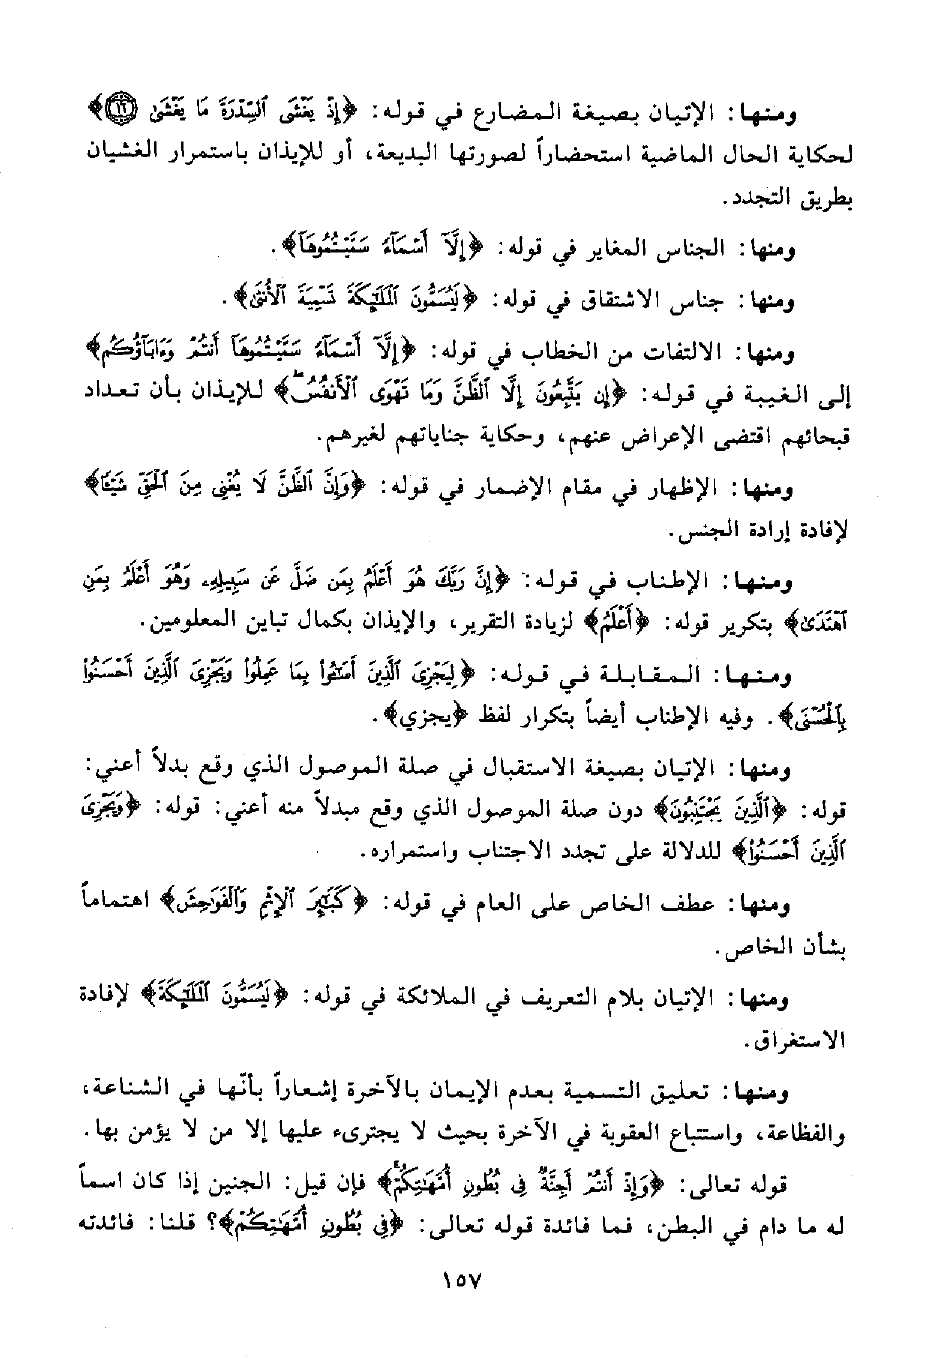 ومنها: الإتيان بصيغة المضارع في قوله: ﴿إِذْ يَغْشَى ٱلسِّدْرَةَ مَا يَغْشَىٰ ١٦﴾
لحكاية الحال الماضية استحضاراً لصورتها البديعة، أو للإيذان باستمرار الغشيان
بطريق التجدد.
ومنها: الجناس المغاير في قوله: ﴿إِلَّآ أَسْمَآءٌ سَمَّيْتُمُوهَآ﴾.
ومنها: جناس الاشتقاق في قوله: ﴿لَيُسَمُّونَ ٱلْمَلَٰٓئِكَةَ تَسْمِيَةَ ٱلْأُنثَىٰ﴾.
ومنها: الالتفات من الخطاب في قوله: ﴿إِلَّآ أَسْمَآءٌ سَمَّيْتُمُوهَآ أَنتُمْ وَءَابَآؤُكُم﴾
إلى الغيبة في قوله: ﴿إِن يَتَّبِعُونَ إِلَّا ٱلظَّنَّ وَمَا تَهْوَى ٱلْأَنفُسُ ۖ﴾ للإيذان بأن تعداد
قبحائهم اقتضى الإعراض عنهم، وحكاية جناياتهم لغيرهم.
ومنها: الإظهار في مقام الإضمار في قوله: ﴿وَإِنَّ ٱلظَّنَّ لَا يُغْنِى مِنَ ٱلْحَقِّ شَيْـًٔا﴾
لإفادة إرادة الجنس.
ومنها: الإطناب في قوله: ﴿إِنَّ رَبَّكَ هُوَ أَعْلَمُ بِمَن ضَلَّ عَن سَبِيلِهِۦ وَهُوَ أَعْلَمُ بِمَنِ
ٱهْتَدَىٰ﴾ بتكرير قوله: ﴿أَعْلَمُ﴾ لزيادة التقرير، والإيذان بكمال تباين المعلومين.
ومنها: المقابلة في قوله: ﴿لِيَجْزِىَ ٱلَّذِينَ أَسَٰٓـُٔوا۟ بِمَا عَمِلُوا۟ وَيَجْزِىَ ٱلَّذِينَ أَحْسَنُوا۟
بِٱلْحُسْنَى﴾. وفيه الإطناب أيضاً بتكرار لفظ ﴿يجزي﴾.
ومنها: الإتيان بصيغة الاستقبال في صلة الموصول الذي وقع بدلاً أعني:
قوله: ﴿ٱلَّذِينَ يَجْتَنِبُونَ﴾ دون صلة الموصول الذي وقع مبدلاً منه أعني: قوله: ﴿وَيَجْزِىَ
ٱلَّذِينَ أَحْسَنُوا۟﴾ للدلالة على تجدد الاجتناب واستمراره.
ومنها: عطف الخاص على العام في قوله: ﴿كَبَٰٓئِرَ ٱلْإِثْمِ وَٱلْفَوَٰحِشَ﴾ اهتماماً
بشأن الخاص.
ومنها: الإتيان بلام التعريف في الملائكة في قوله: ﴿لَيُسَمُّونَ ٱلْمَلَٰٓئِكَةَ﴾ لإفادة
الاستغراق.
ومنها: تعليق التسمية بعدم الإيمان بالآخرة إشعاراً بأنّها في الشناعة،
والفظاعة، واستتباع العقوبة في الآخرة بحيث لا يجترىء عليها إلا من لا يؤمن بها.
قوله تعالى: ﴿وَإِذْ أَنتُمْ أَجِنَّةٌ فِى بُطُونِ أُمَّهَٰتِكُمْ ۖ﴾ فإن قيل: الجنين إذا كان اسماً
له ما دام في البطن، فما فائدة قوله تعالى: ﴿فِى بُطُونِ أُمَّهَٰتِكُمْ﴾؟ قلنا: فائدته
١٥٧